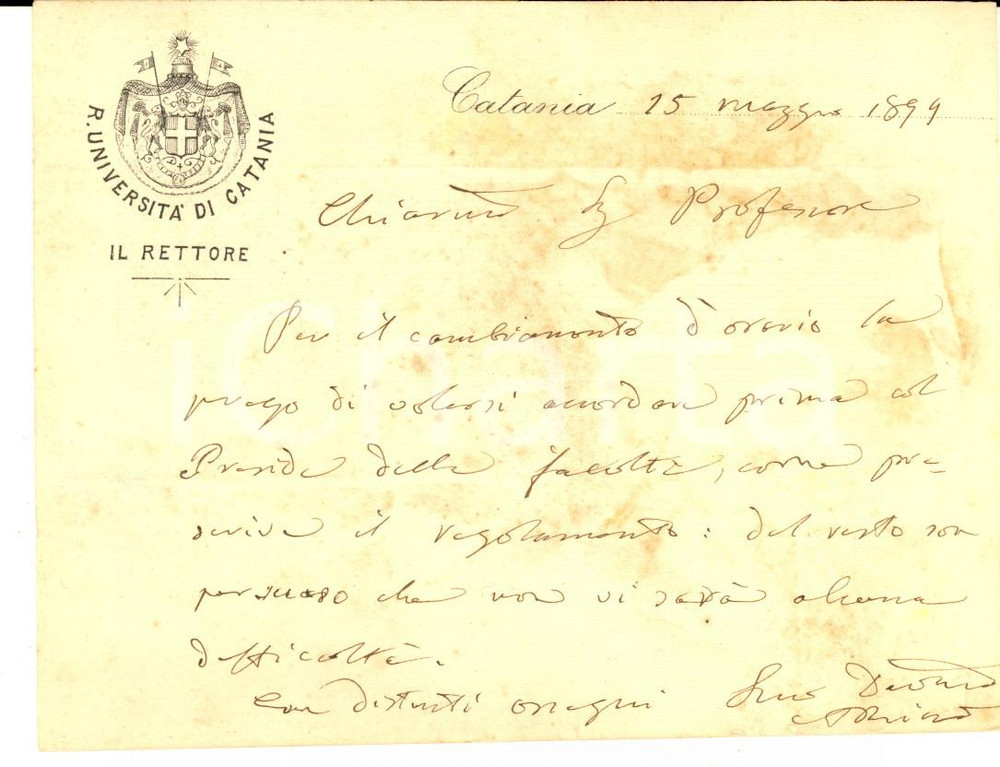 R. UNIVERSITA' DI CATANIA
IL RETTORE
Catania 15 maggio 1899
Chiarmo Sg Professore
Per il cambiamento d'orario la
prego di volersi accordare prima col
Preside della facoltà, come pre-
scrive il regolamento: del resto son
persuaso che non vi sarà alcuna
difficoltà.
Con distinti ossequi Suo Devmo